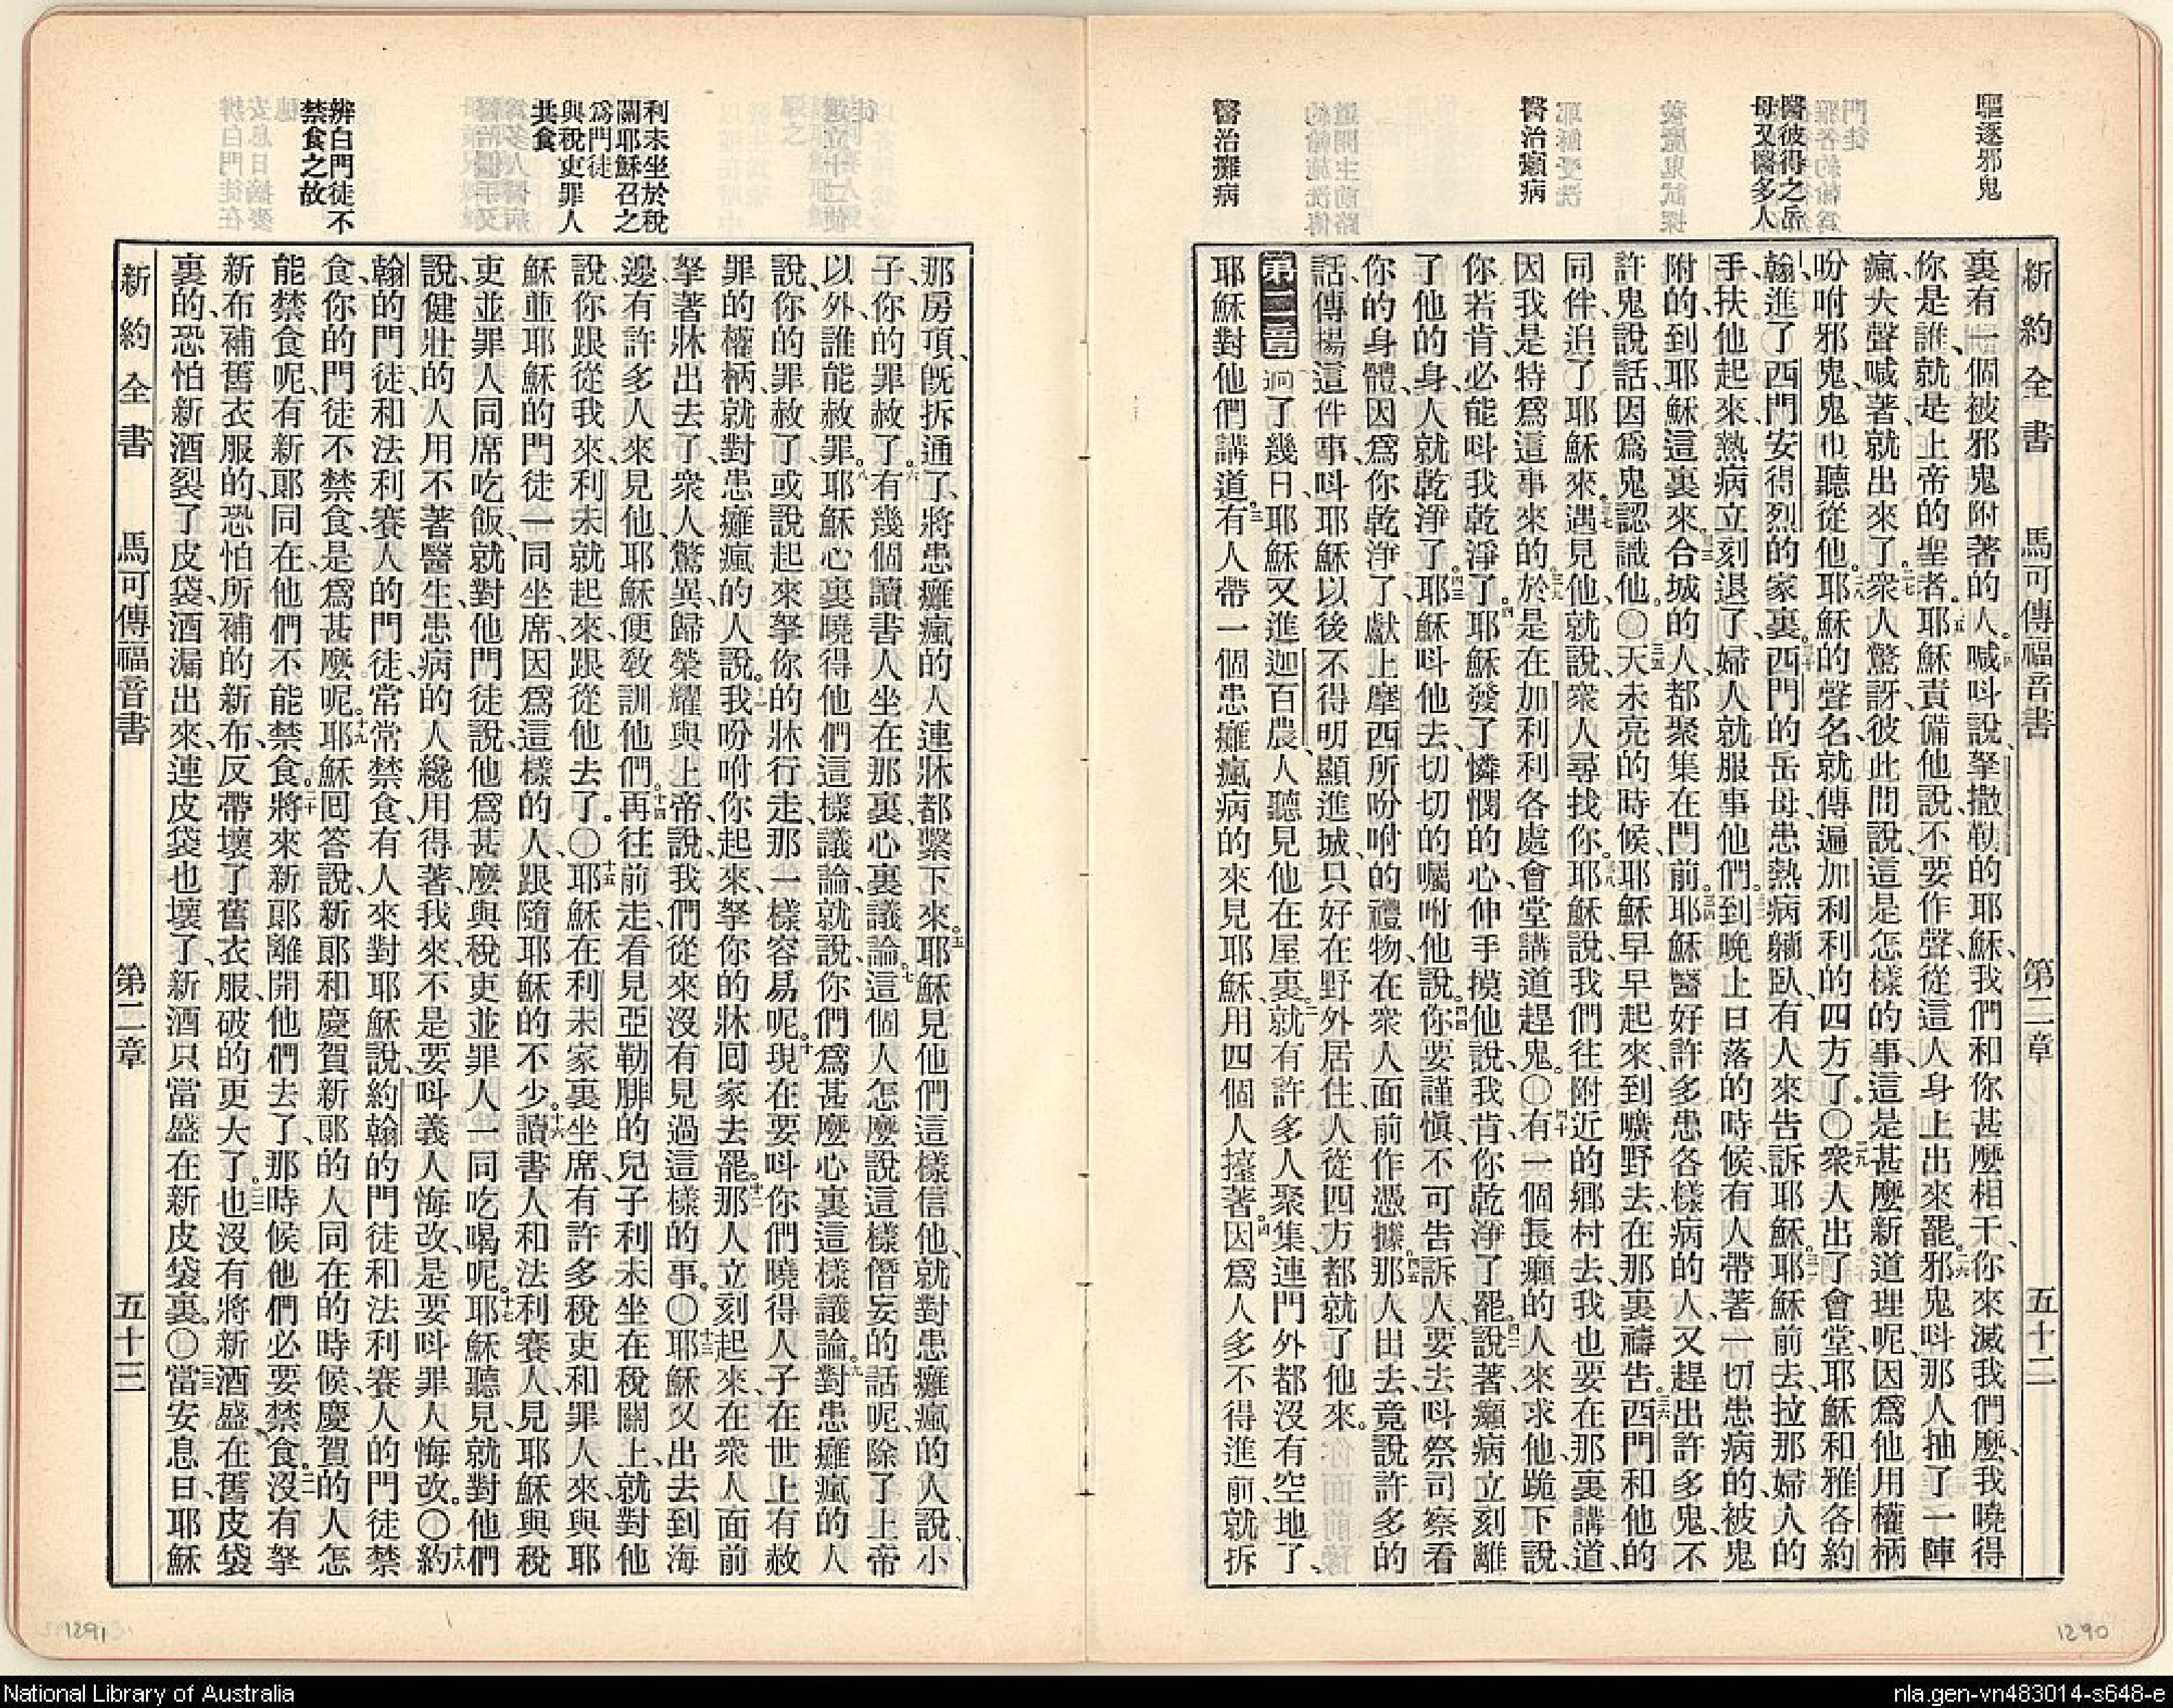 驅逐邪鬼
醫彼得之岳
母又醫多人
醫治癩病
醫治癱病
新約全書 馬可傳福音書 第二章 五十二
裏有一個被邪鬼附著的人、喊呌說、拏撒勒的耶穌、我們和你甚麼相干、你來滅我們麼、我曉得
你是誰、就是上帝的聖者。二五耶穌責備他說、不要作聲、從這人身上出來罷。二六邪鬼呌那人抽了一陣
瘋、大聲喊著就出來了。二七衆人驚訝、彼此問說、這是怎樣的事、這是甚麼新道理呢、因爲他用權柄
吩咐邪鬼、鬼也聽從他。二八耶穌的聲名、就傳遍加利利的四方了。〇二九衆人出了會堂、耶穌和雅各約
翰、進了西門安得烈的家裏。三十西門的岳母、患熱病躺臥、有人來告訴耶穌。三一耶穌前去、拉那婦人的
手、扶他起來、熱病立刻退了、婦人就服事他們。三二到晚上日落的時候、有人帶著一切患病的、被鬼
附的、到耶穌這裏來。三三合城的人、都聚集在門前。三四耶穌醫好許多患各樣病的人、又趕出許多鬼、不
許鬼說話、因爲鬼認識他。〇三五天未亮的時候、耶穌早早起來、到曠野去、在那裏禱告。三六西門和他的
同伴追了耶穌來。三七遇見他、就說、衆人尋找你。三八耶穌說、我們往附近的鄉村去、我也要在那裏講道、
因我是特爲這事來的。三九於是在加利利各處會堂講道趕鬼。〇四十有一個長癩的人來求他、跪下說、
你若肯、必能呌我乾淨了。四一耶穌發了憐憫的心、伸手摸他說、我肯、你乾淨了罷。四二說著、癩病立刻離
了他的身、人就乾淨了。四三耶穌呌他去、切切的囑咐他說。四四你要謹愼、不可告訴人、要去呌祭司察看
你的身體、因爲你乾淨了、獻上摩西所吩咐的禮物、在衆人面前作憑據。四五那人出去、竟說許多的
話、傳揚這件事、呌耶穌以後不得明顯進城、只好在野外居住、人從四方都就了他來。
第二章 過了幾日、耶穌又進迦百農、人聽見他在屋裏。二就有許多人聚集、連門外都沒有空地了、
耶穌對他們講道。三有人帶一個患癱瘋病的來見耶穌、用四個人擡著。四因爲人多不得進前、就拆
利未坐於稅
關耶穌召之
爲門徒
與稅吏罪人
共食
辨白門徒不
禁食之故
那房頂、旣拆通了、將患癱瘋的人、連牀都繫下來。五耶穌見他們這樣信他、就對患癱瘋的人說、小
子、你的罪赦了。六有幾個讀書人坐在那裏、心裏議論。七這個人怎麼說這樣僭妄的話呢、除了上帝
以外、誰能赦罪。八耶穌心裏曉得他們這樣議論、就說、你們爲甚麼心裏這樣議論。九對患癱瘋的人
說、你的罪赦了、或說起來拏你的牀行走、那一樣容易呢。十現在要呌你們曉得人子在世上有赦
罪的權柄、就對患癱瘋的人說。十一我吩咐你起來、拏你的牀回家去罷。十二那人立刻起來、在衆人面前
拏著牀出去了、衆人驚異、歸榮耀與上帝、說、我們從來沒有見過這樣的事。〇十三耶穌又出去到海
邊、有許多人來見他、耶穌便敎訓他們。十四再往前走、看見亞勒腓的兒子利未坐在稅關上、就對他
說、你跟從我來、利未就起來、跟從他去了。〇十五耶穌在利未家裏坐席、有許多稅吏和罪人來、與耶
穌並耶穌的門徒、一同坐席、因爲這樣的人、跟隨耶穌的不少。十六讀書人和法利賽人、見耶穌與稅
吏並罪人同席吃飯、就對他門徒說、他爲甚麼與稅吏並罪人一同吃喝呢。十七耶穌聽見、就對他們
說、健壯的人用不著醫生、患病的人纔用得著、我來不是要呌義人悔改、是要呌罪人悔改。〇十八約
翰的門徒、和法利賽人的門徒、常常禁食、有人來對耶穌說、約翰的門徒和法利賽人的門徒禁
食、你的門徒不禁食、是爲甚麼呢。十九耶穌回答說、新郞和慶賀新郞的人同在的時候、慶賀的人怎
能禁食呢、有新郞同在、他們不能禁食。二十將來新郞離開他們去了、那時候他們必要禁食。二一沒有拏
新布補舊衣服的、恐怕所補的新布、反帶壞了舊衣服、破的更大了。二二也沒有將新酒盛在舊皮袋
裏的、恐怕新酒裂了皮袋、酒漏出來、連皮袋也壞了、新酒只當盛在新皮袋裏。〇二三當安息日、耶穌
新約全書 馬可傳福音書 第二章 五十三
1291
1290
National Library of Australia
nla.gen-vn483014-s648-e